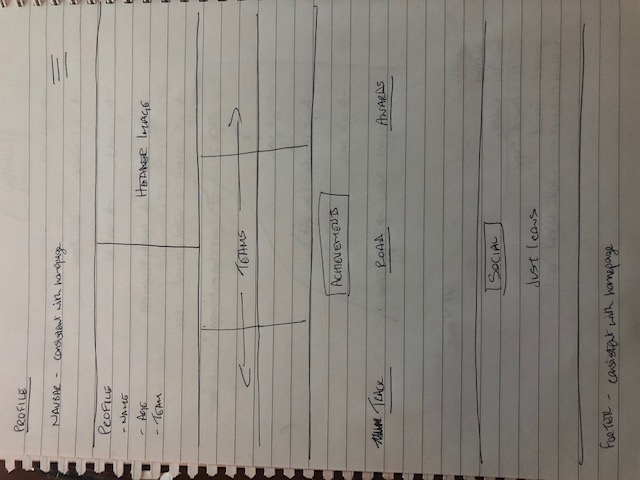 PROFILE
NAVBAR - consistent with homepage
PROFILE
- NAME
- AGE
- TEAM
HEADER IMAGE
TEAMS
ACHIEVEMENTS
TRACK
ROAD
AWARDS
SOCIAL
JUST ICONS
FOOTER - consistent with homepage